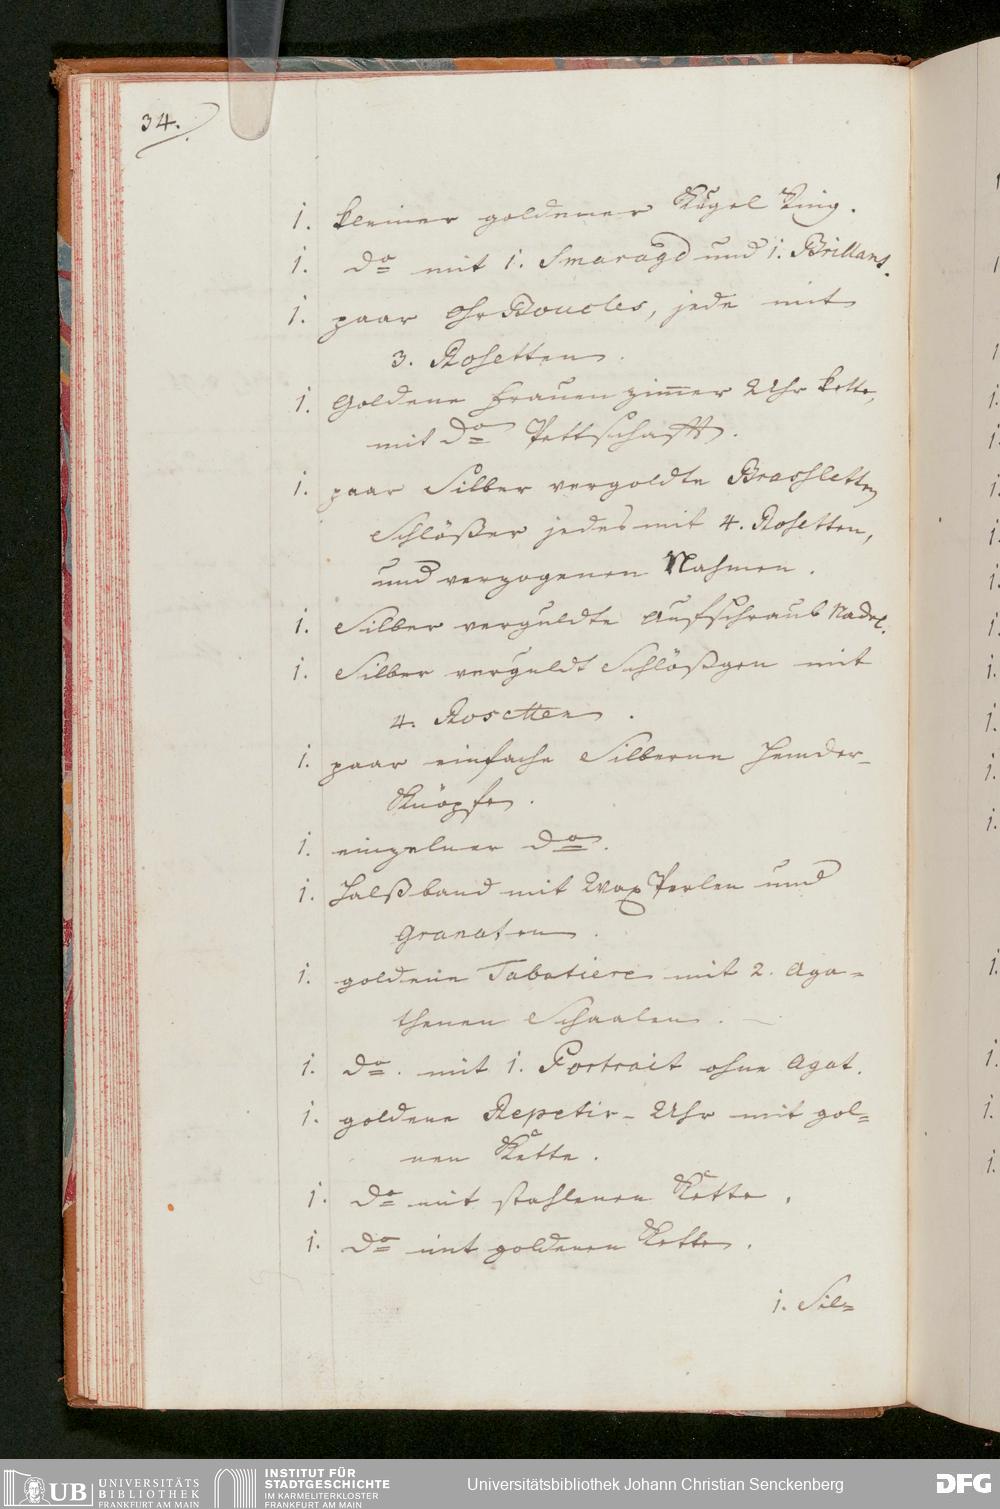 34.
1. kleiner goldener Kugel Ring.
1. Do mit 1. Smaragd und 1. Brillant.
1. paar Ohr Boucles, jede mit
3. Rosetten.
1. Goldene Frauenzimer Uhr kette,
mit Do Pettschafft.
1. paar Silber vergoldte Brasletten
Schlößer jedes mit 4. Rosetten,
und verzogenen Nahmen.
1. Silber verguldte Aufschraub Nadel.
1. Silber verguldt Schlößgen mit
4. Rosetten.
1. paar einfache Silberne Hemder-
Knöpfe.
1. einzelner Do.
1. Halßband mit Wax Perlen und
Granaten.
1. goldene Tabatiere mit 2. Aga=
thenen Schaalen. —
1. Do. mit 1. Portrait ohne Agat.
1. goldene Repetir-Uhr mit gol=
nen Kette.
1. Do mit stahlenen Kette.
1. Do mit goldenen Kette.
1. Sil=
UB UNIVERSITÄTS
BIBLIOTHEK
FRANKFURT AM MAIN
INSTITUT FÜR
STADTGESCHICHTE
IM KARMELITERKLOSTER
FRANKFURT AM MAIN
Universitätsbibliothek Johann Christian Senckenberg
DFG